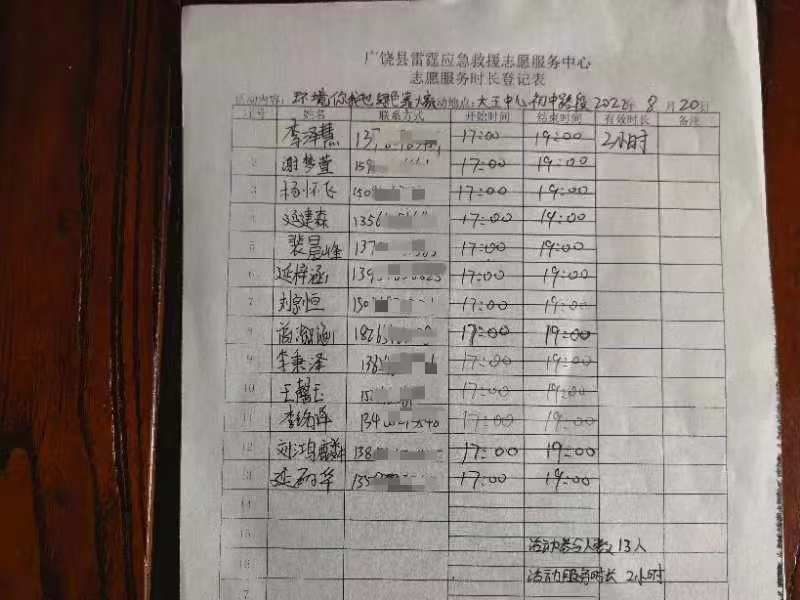 广饶县雷霆应急救援志愿服务中心
志愿服务时长登记表
活动内容: 环境你我他 活动地点: 大王中心初中路段 2022年 8月20日
序号 姓名 联系方式 开始时间 结束时间 有效时长 备注
李泽慧 137 17:00 19:00 2小时
2 谢梦萱 159 17:00 19:00
3 杨怀飞 150 17:00 19:00
4 延建森 1356 17:00 19:00
5 裴晨峰 137 17:00 19:00
6 延梓涵 139 17:00 19:00
7 刘家恒 150 17:00 19:00
8 1826 17:00 19:00
9 李秉泽 138 17:00 19:00
10 王馨玉 15 17:00 19:00
11 134 17:00 19:00
12 刘鸿麟 138 17:00 19:00
13 135 17:00 19:00
14
15 活动参与人数 13人
16 活动服务时长 2小时